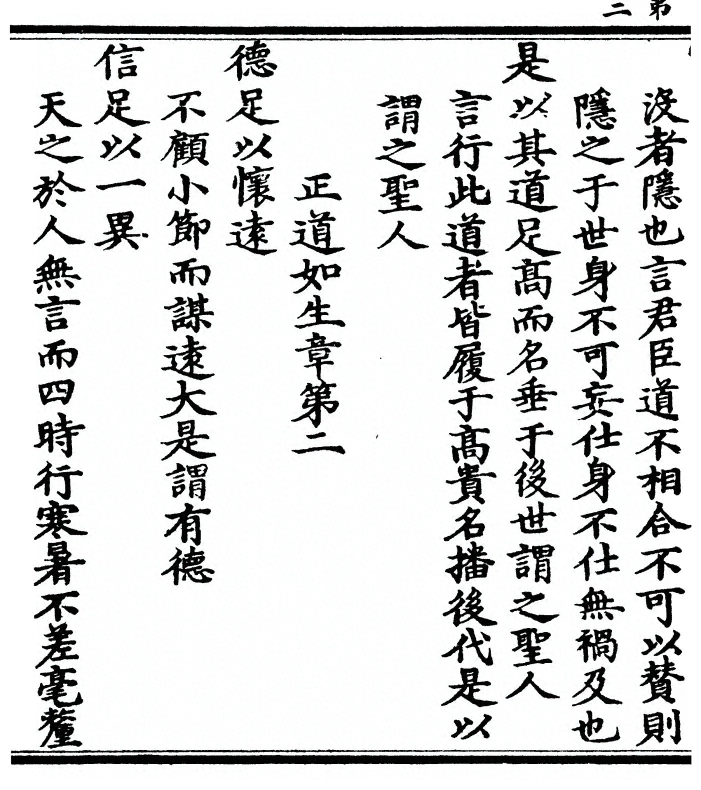 第二
沒者隱也言君臣道不相合不可以賛則
隱之于世身不可妄仕身不仕無禍及也
是以其道足髙而名垂于後世謂之聖人
言行此道者皆履于髙貴名播後代是以
謂之聖人
正道如生章第二
德足以懷遠
不顧小節而謀遠大是謂有德
信足以一異
天之於人無言而四時行寒暑不差毫釐